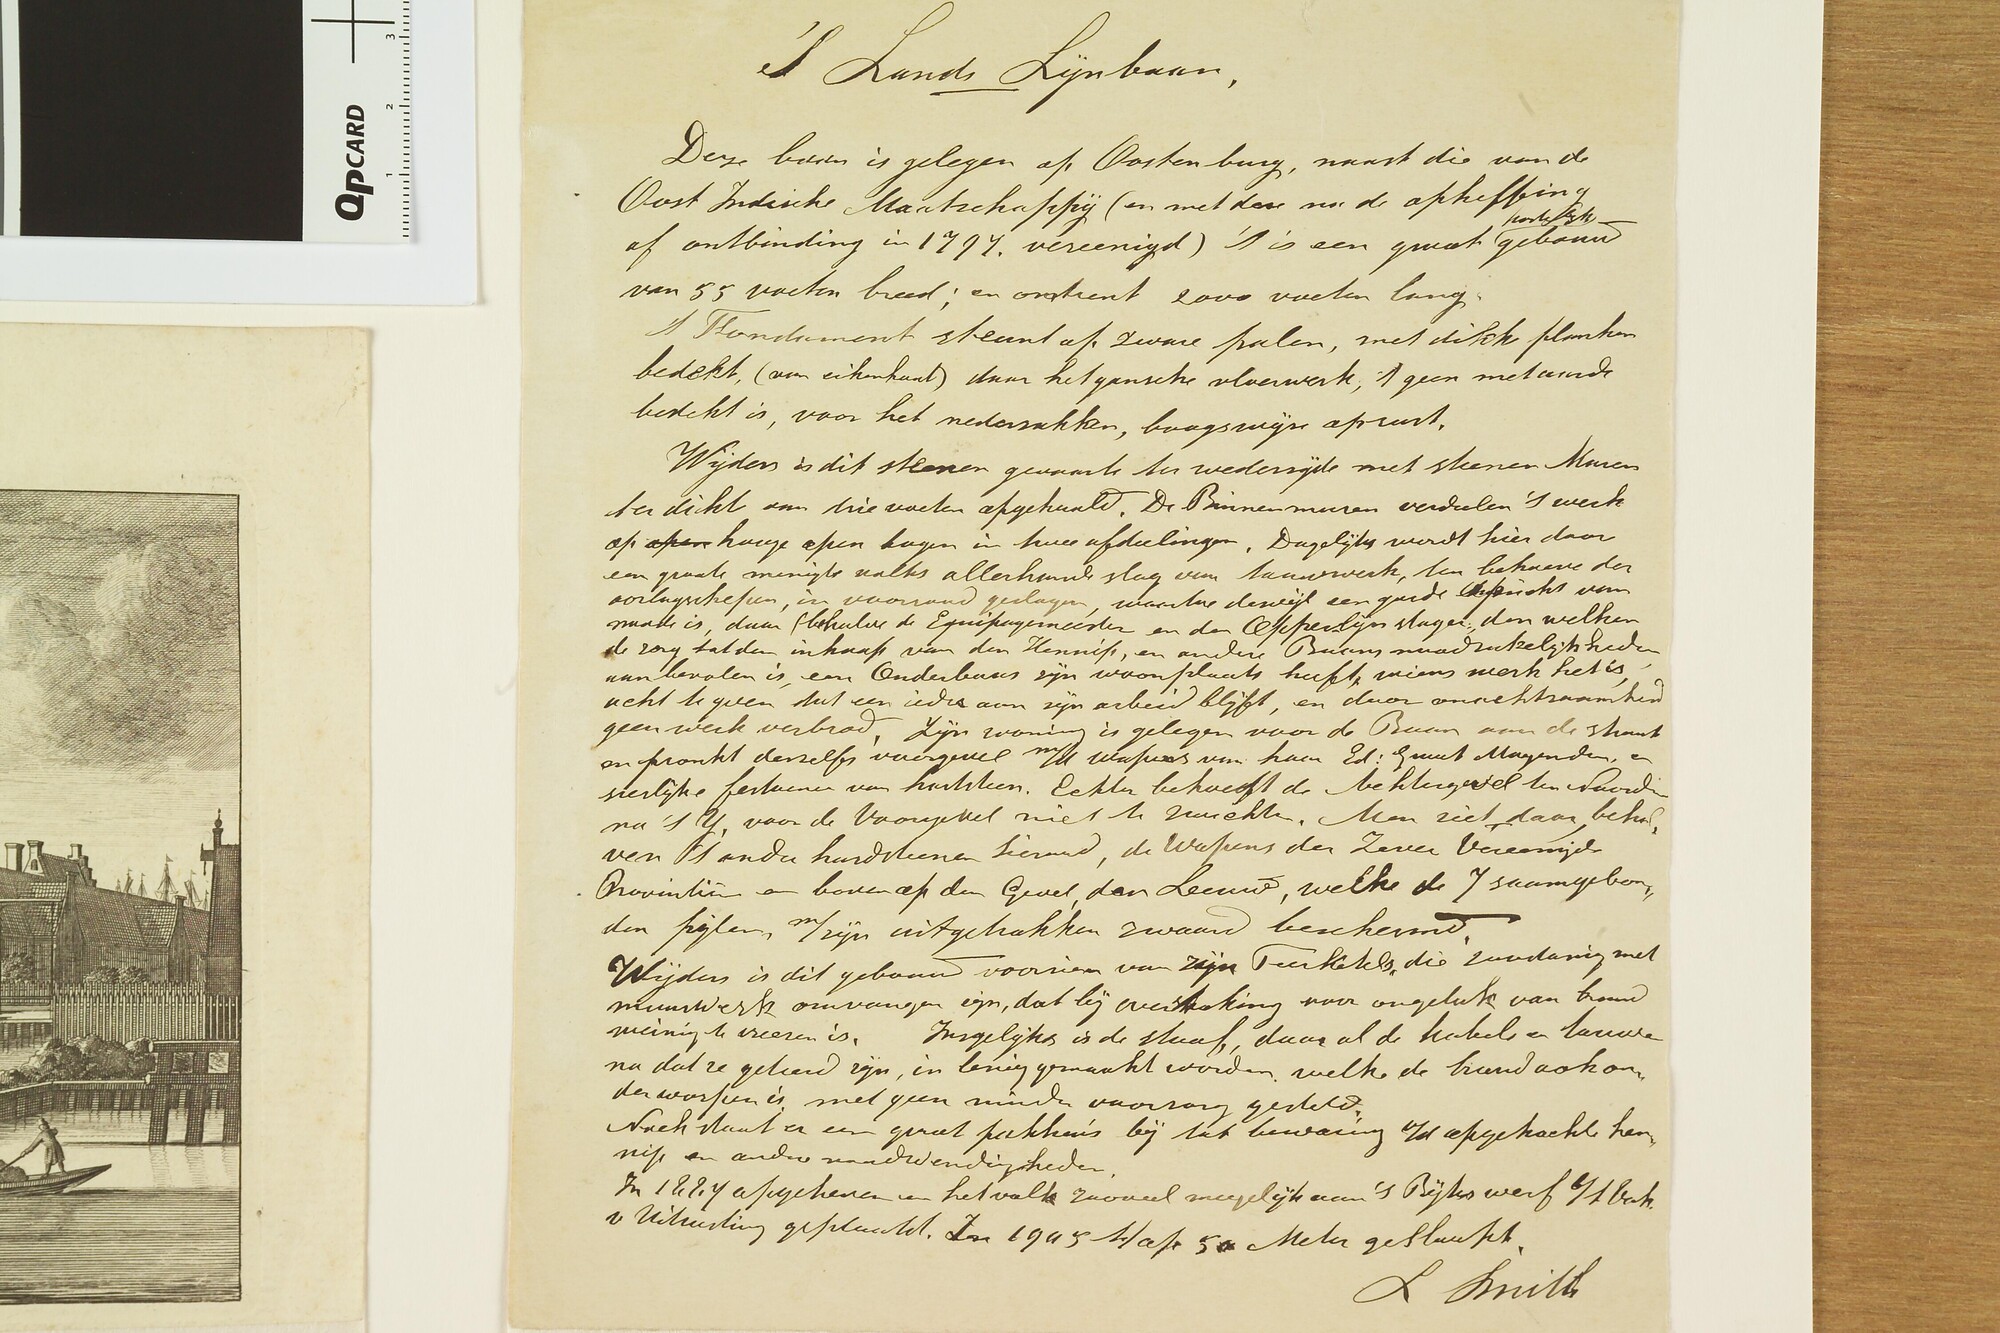 QPCARD
1 2 3
'S Lands Lijnbaan,
Deze baan is gelegen op Oostenburg, naast die van de
Oost Indische Maatschappij (en met deze na de opheffing
of ontbinding in 1797. vereenigd) 't is een groot gebouw
van 55 voeten breed; en omtrent 2000 voeten lang.
't Fondament steunt op zware palen, met dikke planken
bedekt, (van eikenhout) daar het gansche vloerwerk, 't geen met aarde
bedekt is, voor het nederzakken, boogswijze op rust.
Wijders is dit steenen gevaarte ter wederzijde met steenen Muren
ter dichte van drie voeten opgehaald. De Binnenmuren verdeelen 't werk
op open hooge open bogen in twee afdeelingen. Dagelijks wordt hier door
een groote menigte volks allerhande slag van touwwerk, ten behoeve der
oorlogschepen, in voorraad geslagen, waartoe dewijl een goede opzicht van
noode is, daar (behalve de Equipagemeester en den Opperlijnslager, den welken
de zorg tot den inkoop van den Hennip, en andere Baans noodzakelijkheden
aanbevolen is, een Onderbaas zijn woonplaats heeft, wiens werk het is,
acht te geven dat een ieder aan zijn arbeid blijft, en door onachtzaamheid
geen werk verbrod. Zijn woning is gelegen voor de Baan aan de straat
en pronkt derzelfs voorgevel m/d wapens van haar Ed: Groot Mogenden, en
sierlijke festoenen van hardsteen. Echter behoeft de Achtergevel ten Noorden
na 't Y, voor de Voorgevel niet te zwichten. Men ziet daar behal,
ven 't ander hardsteenen sieraad, de Wapens der Zeven Vereenigde
Provintiën en boven op den Gevel, den Leeuw, welke de 7 saamgebon,
den pijlen, m/zijn uitgetrokken zwaard beschermd.
Wijders is dit gebouw voorzien van zijn Teerketels, die zoodanig met
muurwerk omvangen zijn, dat bij overkoking voor ongeluk van brand
weinig te vreezen is. Insgelijks is de stoof, daar al de kabels en touwen
na dat ze geteerd zijn, in lenig gemaakt worden, welke de brand ook on,
derworpen is, met geen minder voorzorg gesteld.
Noch staat er een groot pakhuis bij tot bewaring v/d opgekochte hen,
nip en andre noodwendigheden.
In opgeheven en het volk zooveel mogelijk aan 's Rijks werf
v Uitrusting geplaatst. In 1905 tot op 50 Meter gesloopt.
L Smith